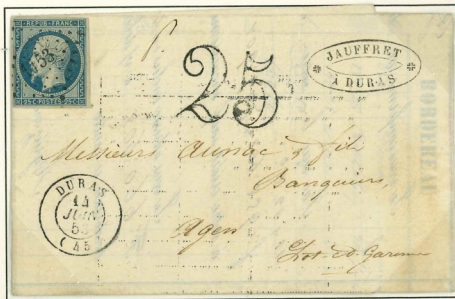 REPUB FRANC
25 C POSTES 25 C
25
JAUFFRET
A DURAS
Messieurs Aunac & fils
Banquiers,
Agen
Lot-et-Garonne
DURAS
14
JUIN
(45)